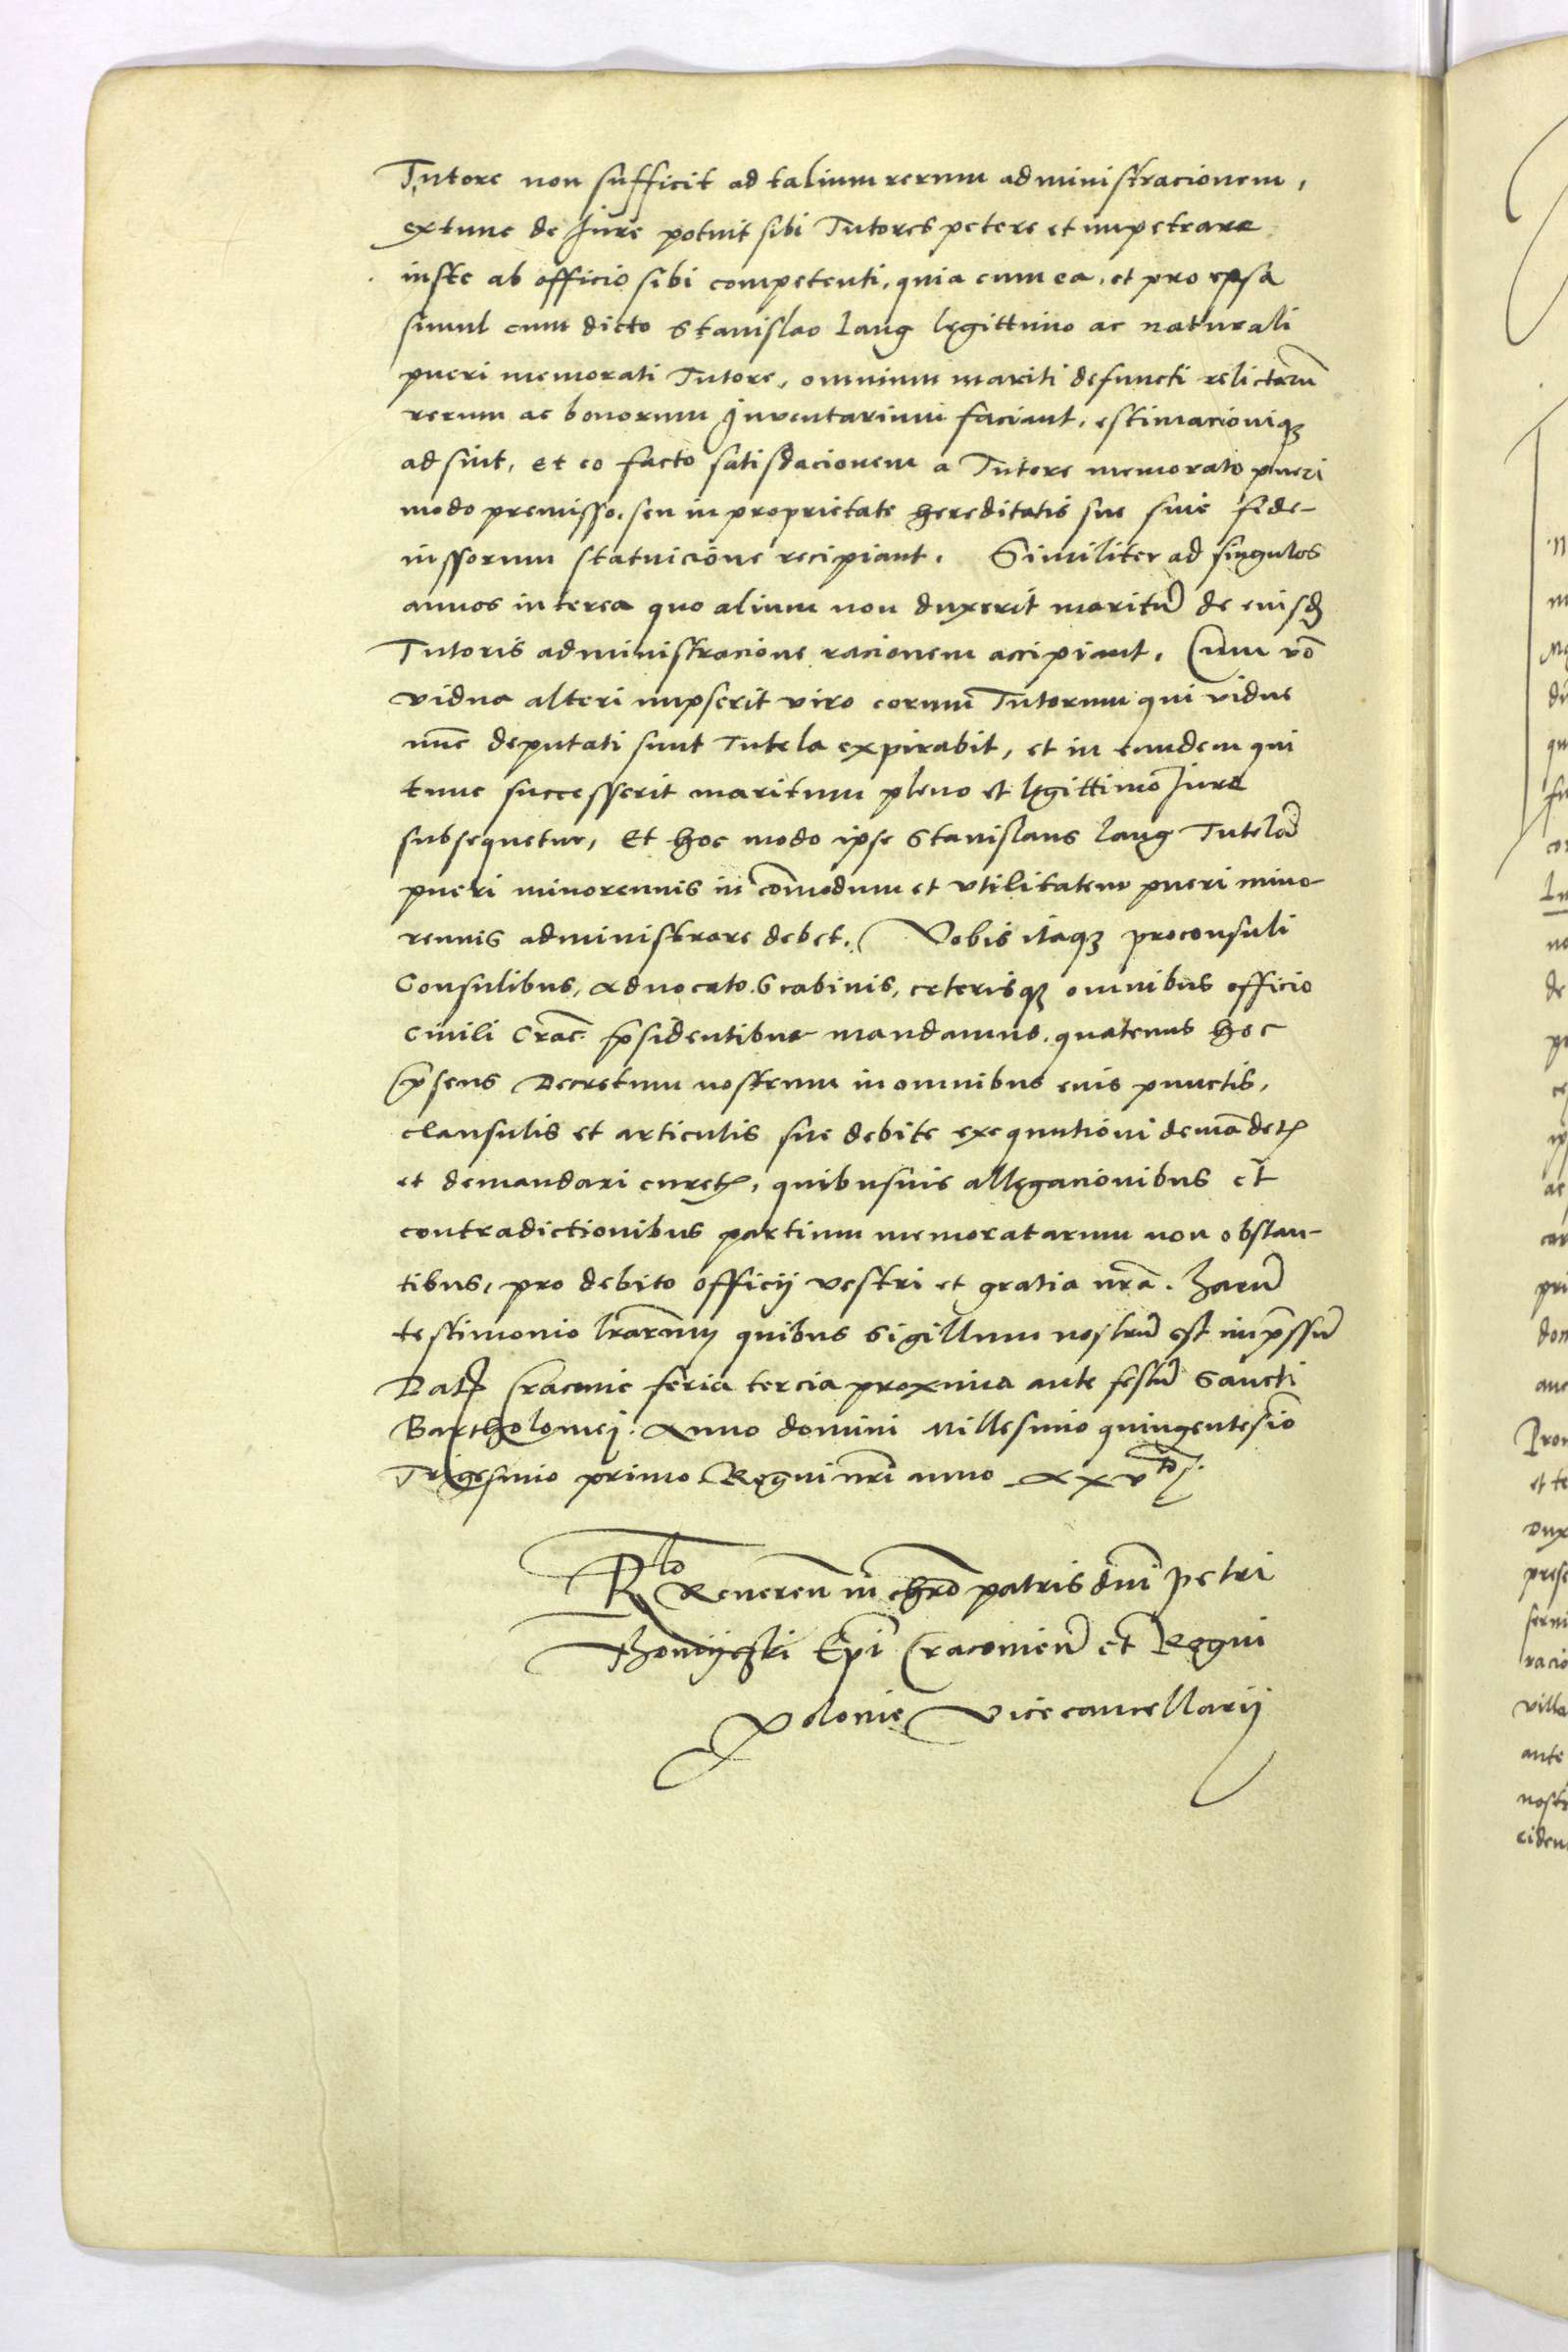 Tutore non sufficit ad talium rerum administracionem,
extunc de Jure potuit sibi Tutores petere et impetrare
iuste ab officio sibi competenti, quia cum ea, et pro epsa
simul cum dicto Stanislao Lang legittimo ac naturali
pueri memorati Tutore, omnium mariti defuncti relictarũ
rerum ac bonorum Inventarium faciant, estimacioniqꝫ
adsint, et eo facto satisdacionem a Tutore memorato pueri
modo premisso, seu in proprietate hereditatis sue sive fide-
iussorum statuicione recipiant. Similiter ad singulos
annos interea quo alium non duxerit maritũ de euisđ
Tutoris administracione racionem accipiant. Cum vo᷃
vidua alteri nupserit viro eorum Tutorum qui vidue
nũc deputati sunt Tutela expirabit, et in eundem qui
tunc successerit maritum pleno et legittimo Jure
subsequetur, Et hoc modo ipse Stanislaus Lang Tutelã
pueri minorennis in cõmodum et utilitatem pueri mino-
rennis administrare debet. Vobis itaqꝫ proconsuli
Consulibus, Advocato. Scabinis, ceterisqꝫ omnibus officio
Civili Crac̃ p̃sidentibus mandamus, quatenus hoc
p̃sens Decretum nostrum in omnibus euis punctis,
clausulis et articulis sue debite exequutioni demãdetꝭ
et demandari curetꝭ, quibusvis allegacionibus et
contradictionibus partium memoratarum non obstan-
tibus, pro debito officij vestri et gratia nrã. Harũ
testimonio lrãrum quibus Sigillum nostrũ est imp̃ssũ
Datꝭ Cracovie feria tercia proxima ante festũ Sancti
Bartholomej. Anno domini Millesimo quingentesiõ
Trigesimo primo Regni nrĩ anno xxvto.
Rlo Reverenꝭ in chrõ patris dnĩ Petri
Thomijczki Epĩ Cracovienꝭ et Regni
Polonie Vicecancellarij